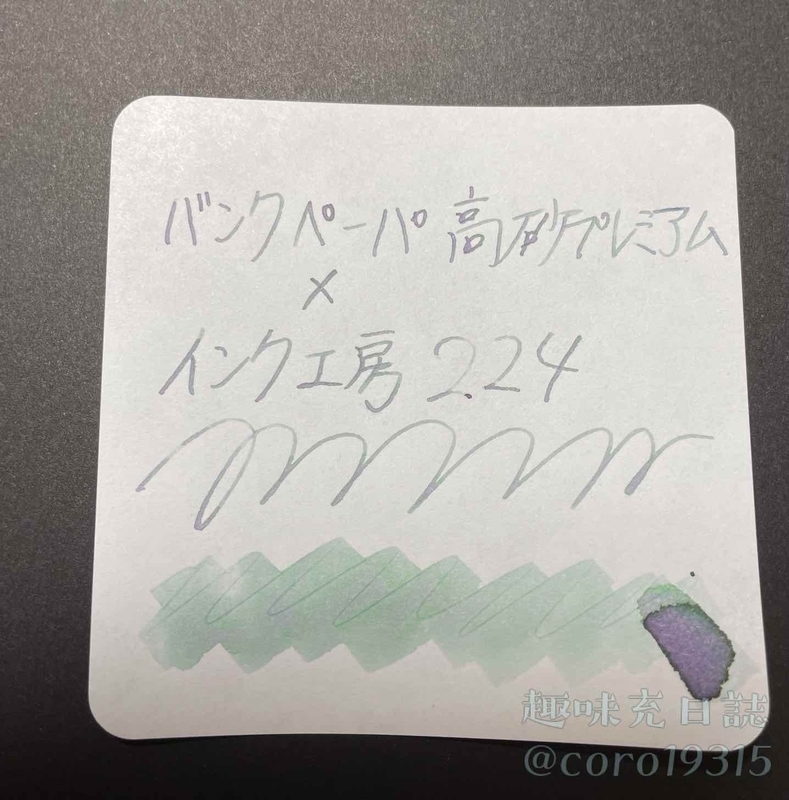 バンクペーパ高砂プレミアム
×
インク工房 224
趣味充日誌
@coro19315